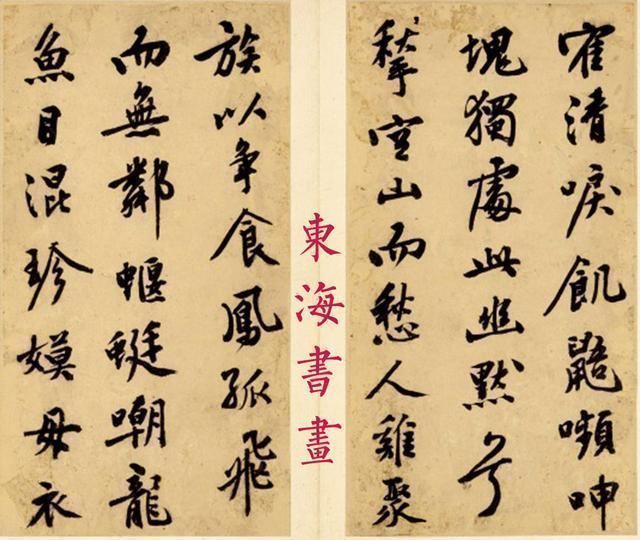 寉清唳飢鼯嚬呻
塊獨處此幽默兮
空山而愁人雞聚
東海書畫
族以争食鳳孤飛
而無鄰蝘蜓嘲龍
魚目混珍嫫母衣